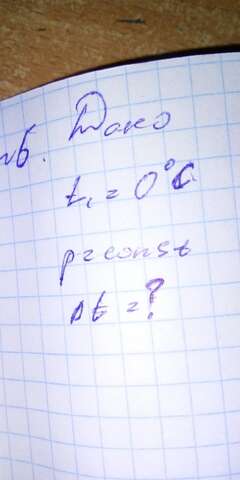 №6. Дано
t₁ = 0°C
p = const
Δt = ?